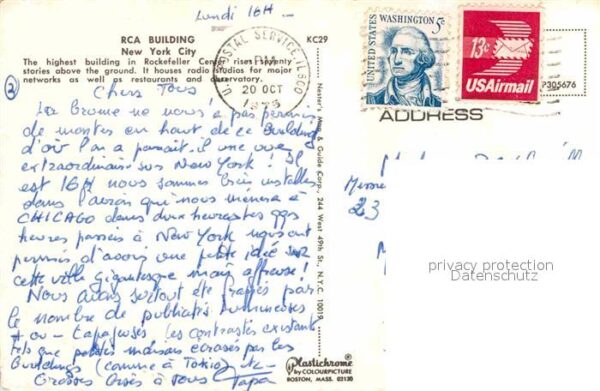 Lundi 16H -
RCA BUILDING
New York City
KC29
The highest building in Rockefeller Center rises seventy
stories above the ground. It houses radio studios for major
networks as well as restaurants and observatory.
U.S. POSTAL SERVICE
PM
20 OCT
UNITED STATES
WASHINGTON 5c
13c
USAirmail
P305676
ADDRESS
②
Chers Tous
La brume ne nous a pas permis
de monter en haut de ce Building
d'où l'on a parait-il une vue
extraordinaire sur New York! Il
est 16H nous sommes bien installés
dans l'avion qui nous mènera à
CHICAGO dans deux heures les qqs
heures passées à New York nous ont
permis d'avoir une petite idée sur
cette ville gigantesque mais affreuse!
Nous avons surtout été frappés par
le nombre de publicités lumineuses
+ ou - tapageuses les contrastes existants
tels que petites maisons écrasées par les
Buildings (comme à Tokio) etc -
Grosses bises à tous Papa
Nester's Map & Guide Corp., 244 West 49th St., N.Y.C. 10019
Plastichrome®
by COLOURPICTURE
BOSTON, MASS. 02130
23
privacy protection
Datenschutz